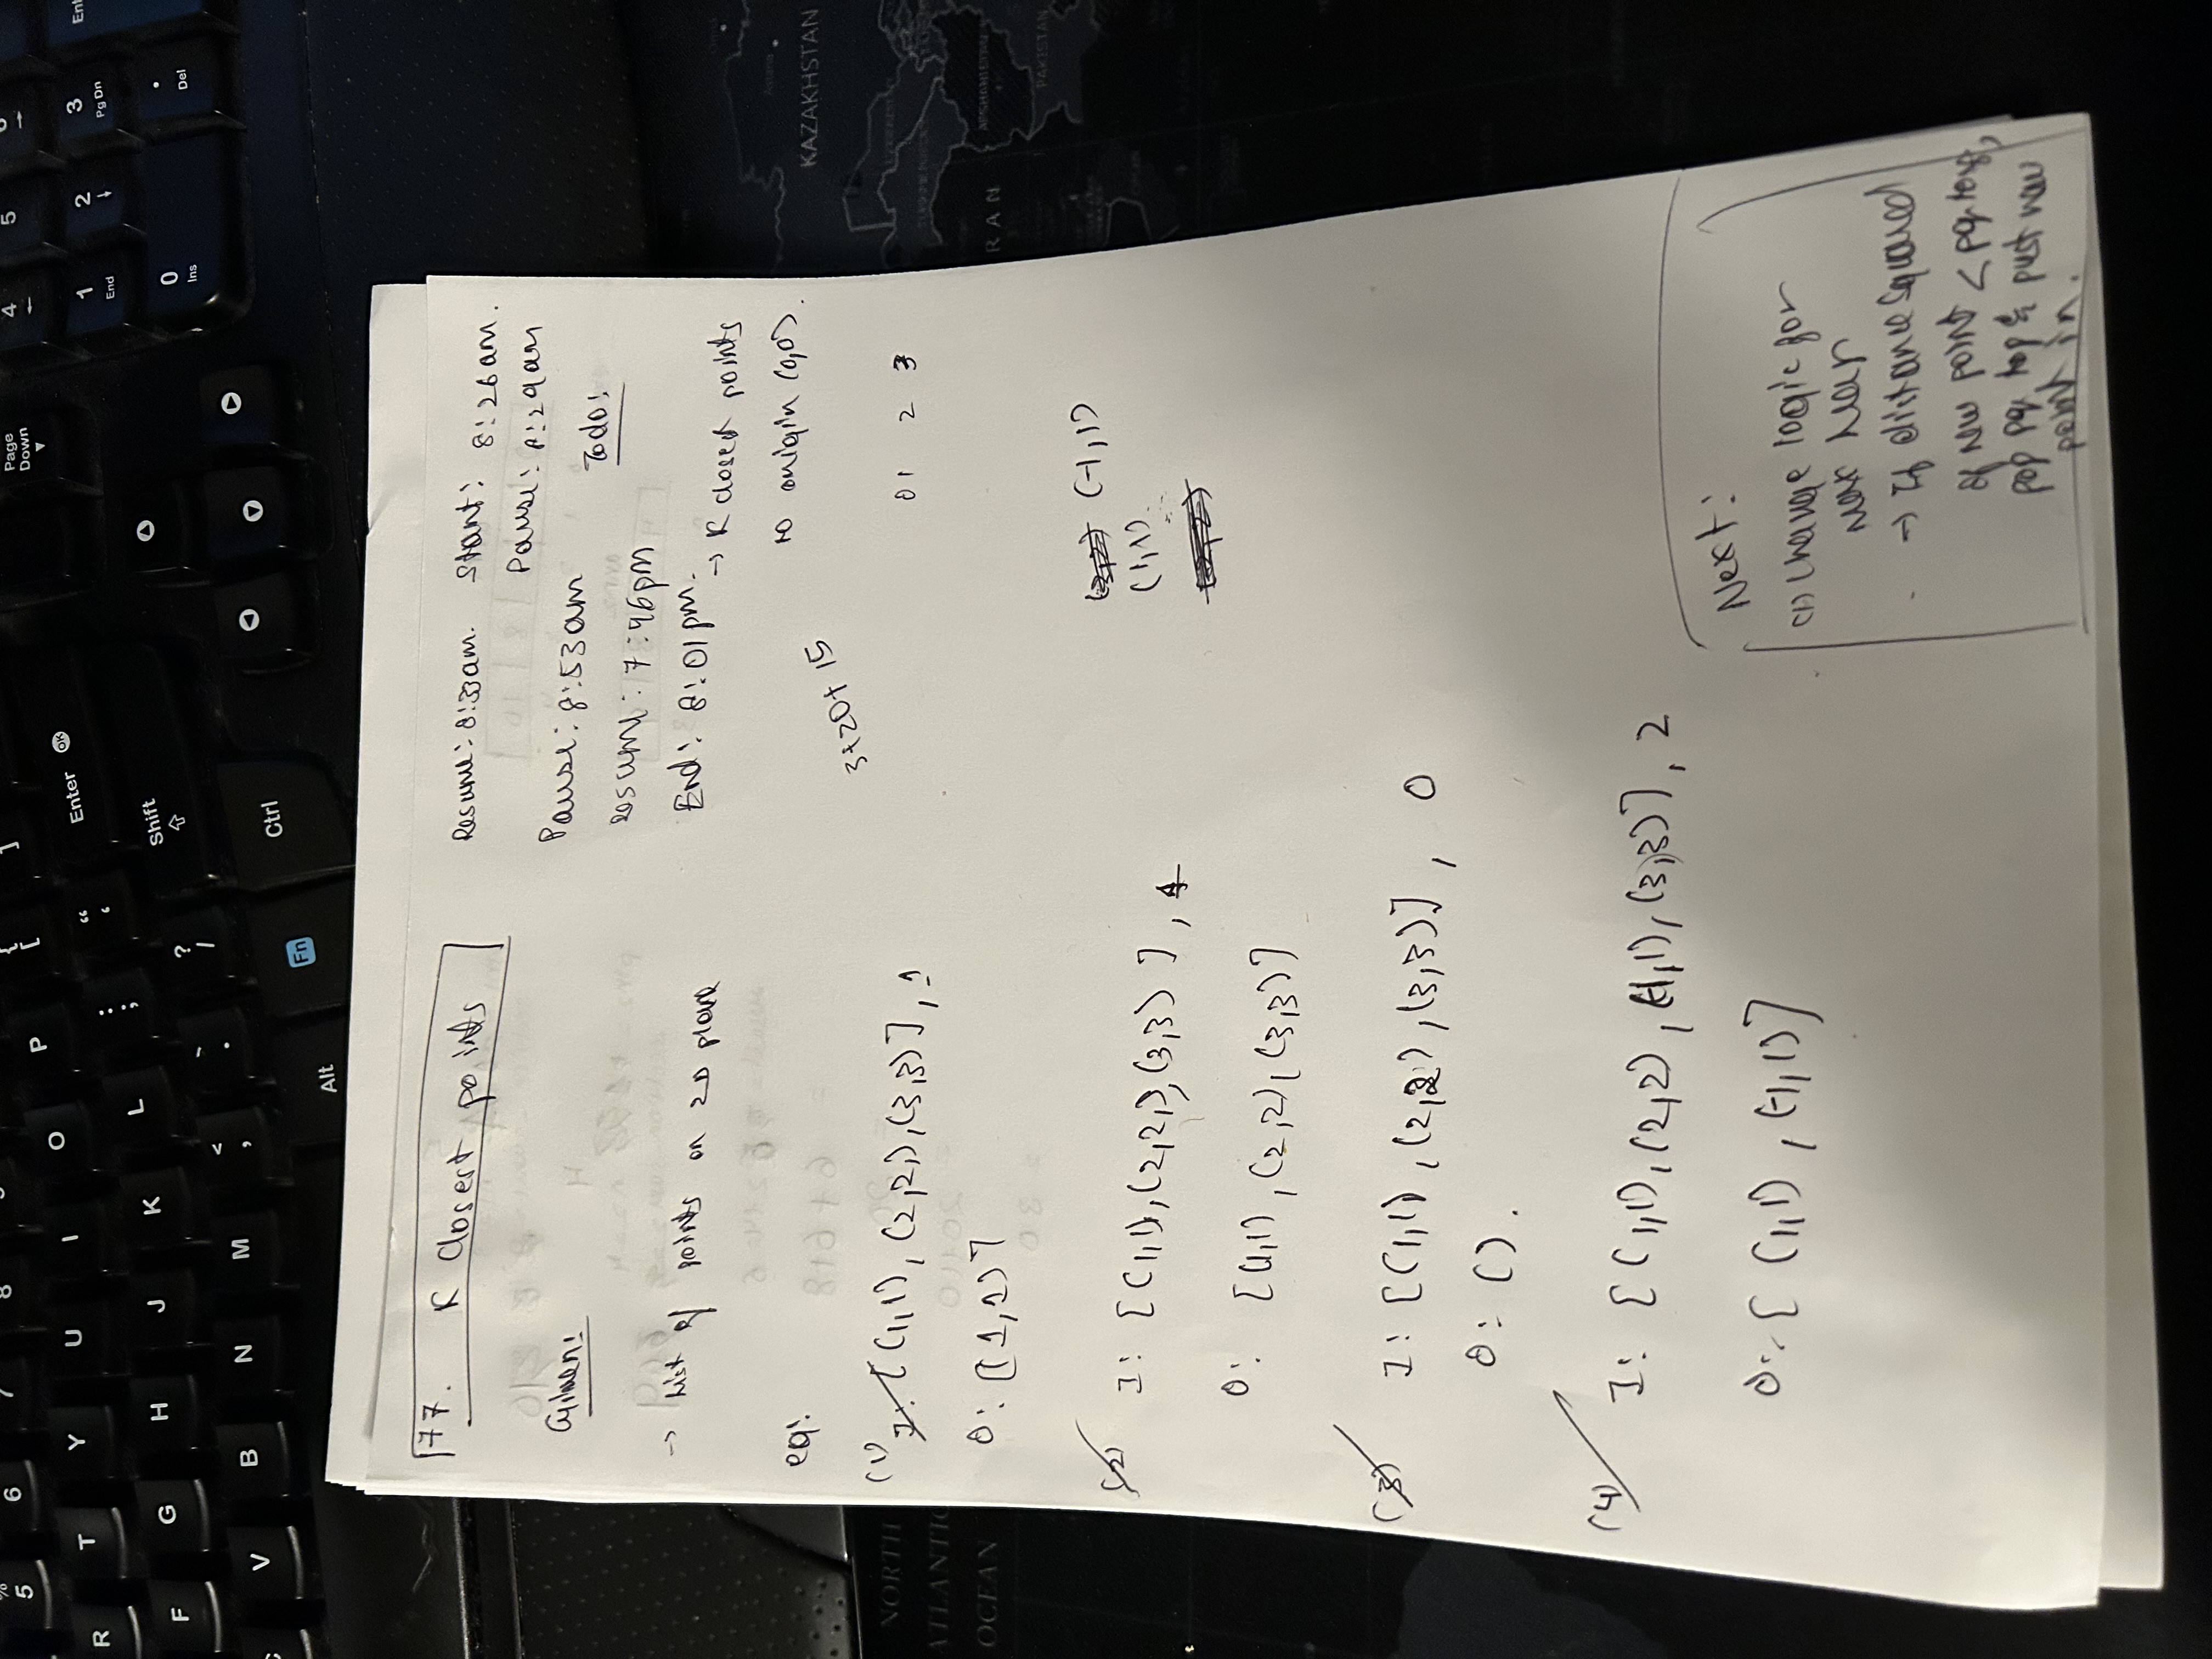 % 5
6
7
8
{ [
]
Page Down
4
5
6
R
T
Y
U
I
O
P
“ ‘
Enter OK
1 End
2
3 Pg Dn
F
G
H
J
K
L
: ;
Shift
0 Ins
. Del
V
B
N
M
< ,
? /
Ctrl
Alt
Fn
177. K Closest points
Resume: 8:33am. Start: 8:26am.
Pause: 8:29am
Given:
Pause: 8:53am
Todo:
Resume: 7:46pm
→ List of points on 2D plane
End: 8:01pm.
→ K closest points
to origin (0,0).
eg:
3+20+15
(1) I: [(1,1), (2,2), (3,3)], 1
0 1 2 3
O: [(1,1)]
(2) I: [(1,1), (2,2), (3,3)], 4
(-1,1)
(1,1).
O: [(1,1), (2,2), (3,3)]
(3) I: [(1,1), (2,2), (3,3)], 0
O: ().
(4) I: [(1,1), (2,2), (-1,1), (3,3)], 2
O: [(1,1), (-1,1)]
Next:
(1) Change logic for
max heap
→ If distance squared
of new point < pq top,
pop pq top & push new
point in.
NORTH
ATLANTIC
OCEAN
KAZAKHSTAN
RAN
AFGHANISTAN
PAKISTAN